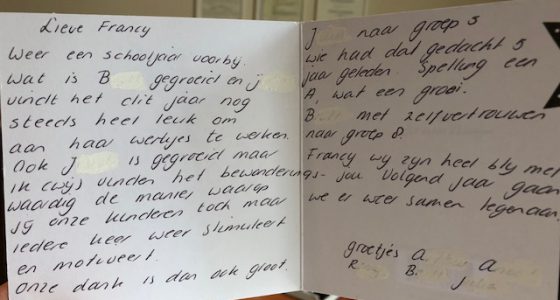 Lieve Francy
Weer een schooljaar voorbij.
Wat is B gegroeid en J
vindt het dit jaar nog
steeds heel leuk om
aan haar werkjes te werken.
Ook J is gegroeid maar
vinden het bewonderings-
waardig de manier waarop
jij onze kinderen toch maar
iedere keer weer stimuleert
en motiveert.
Onze dank is dan ook groot.
J naar groep 5
wie had dat gedacht 5
jaar geleden. Spelling een
A, wat een groei.
B met zelfvertrouwen
naar groep 8.
Francy wij zijn heel blij met
jou volgend jaar gaan
we er weer samen tegenaan.
groetjes A A
R B Julia